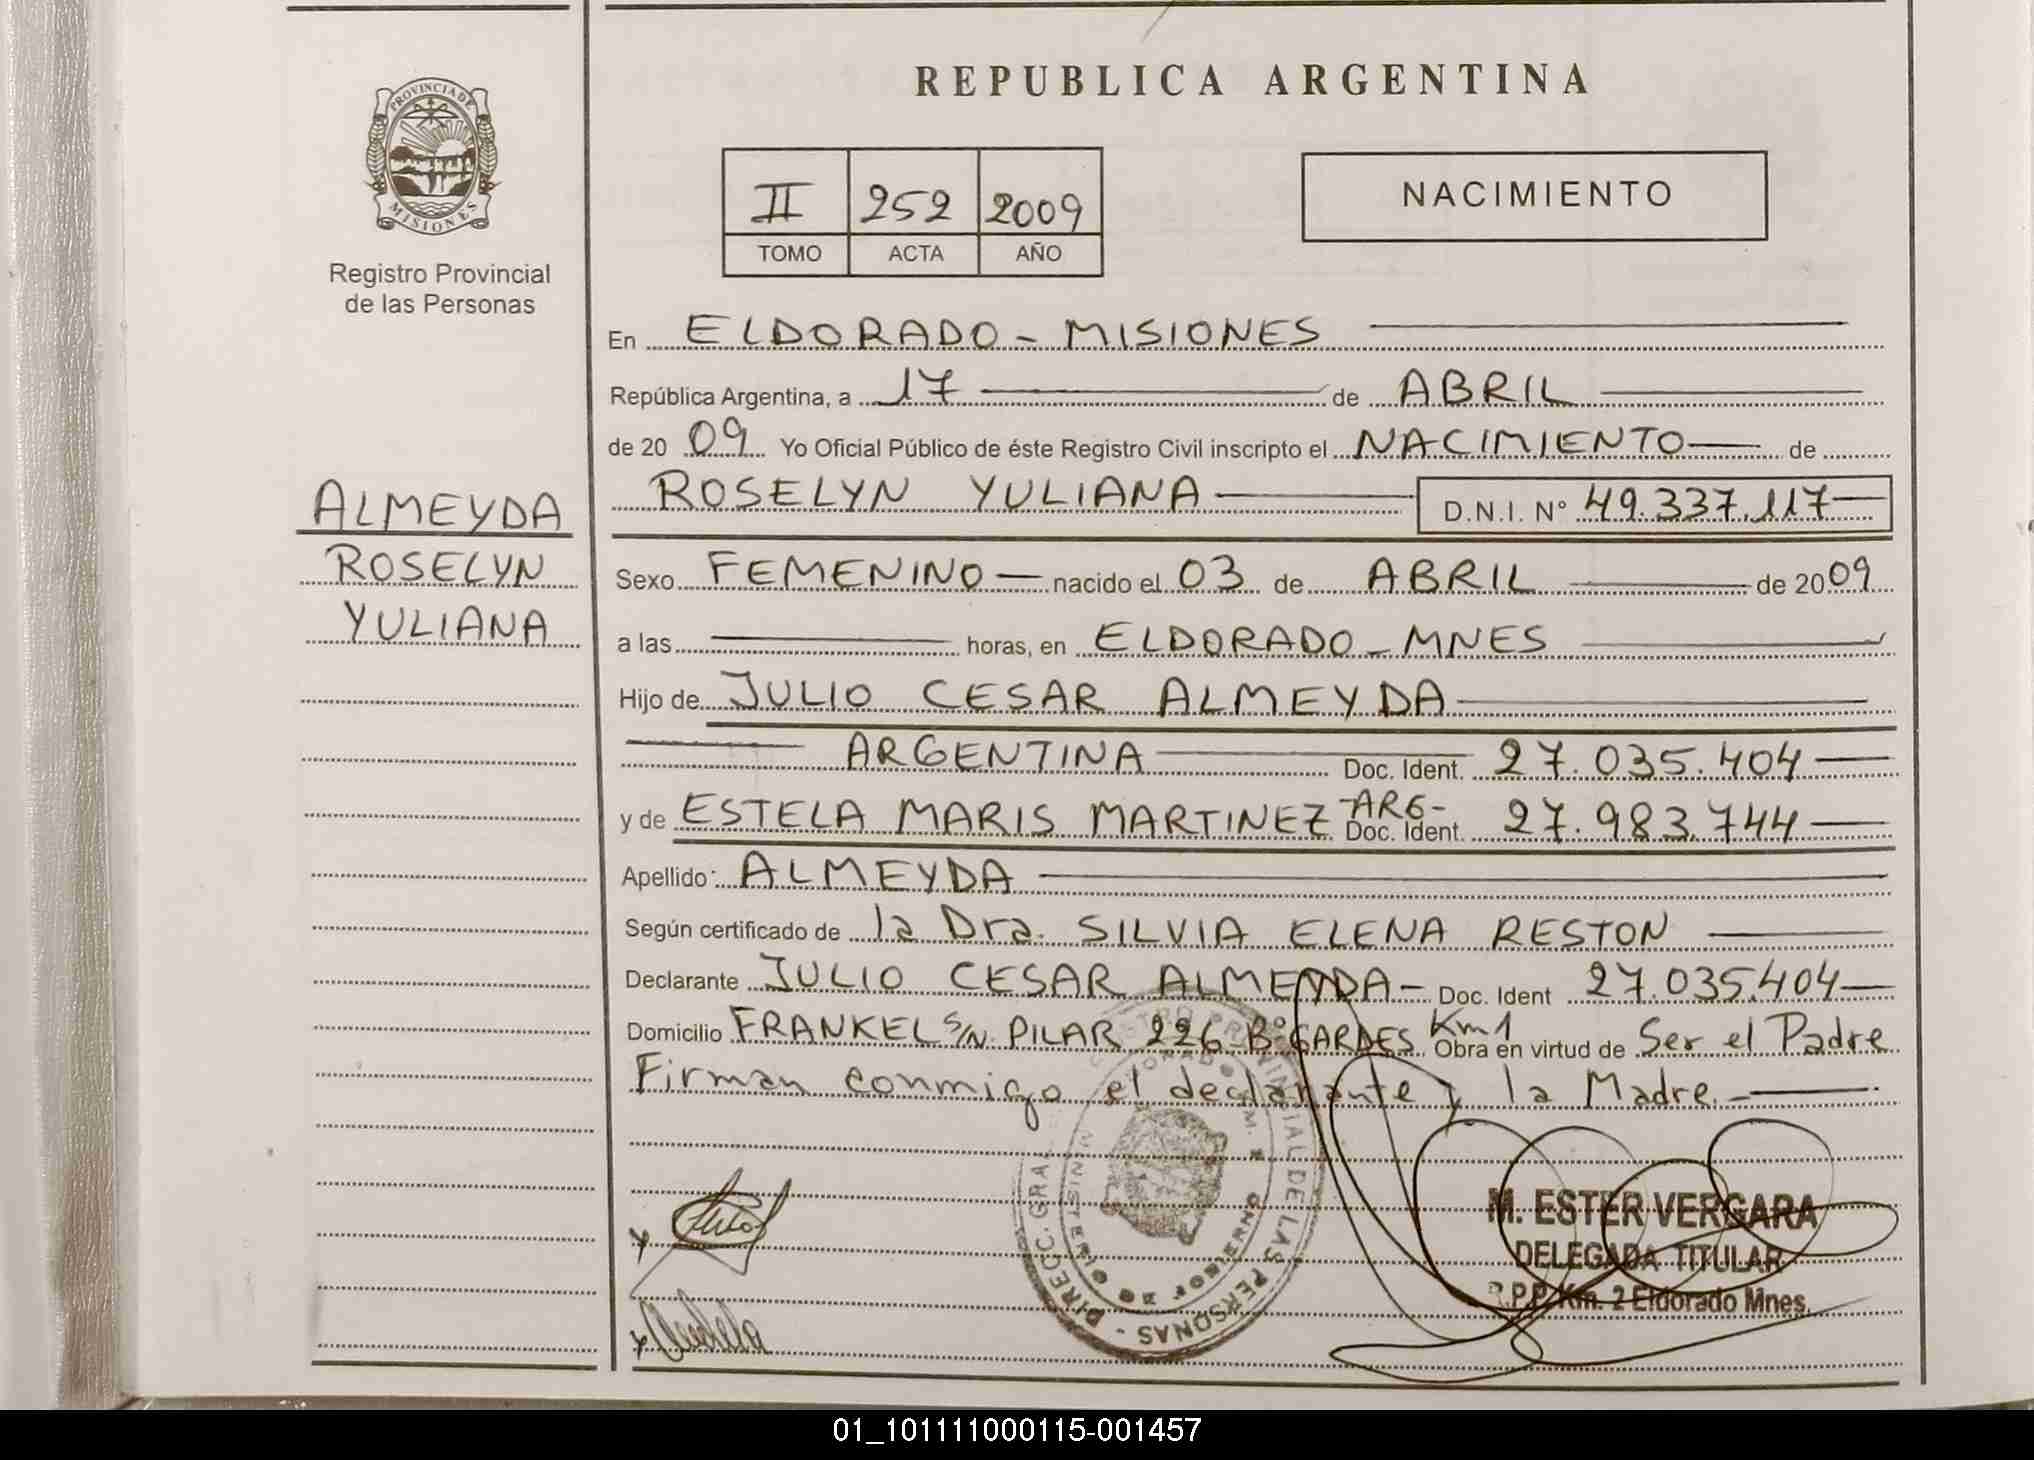 REPUBLICA ARGENTINA
PROVINCIA DE
MISIONES
Registro Provincial
de las Personas
II 252 2009
TOMO ACTA AÑO
NACIMIENTO
ALMEYDA
ROSELYN
YULIANA
En ELDORADO - MISIONES
República Argentina, a 17 de ABRIL
de 20 09 Yo Oficial Público de éste Registro Civil inscripto el NACIMIENTO de
ROSELYN YULIANA D.N.I. N° 49.337.117
Sexo FEMENINO nacido el 03 de ABRIL de 2009
a las horas, en ELDORADO - MNES
Hijo de JULIO CESAR ALMEYDA
ARGENTINA Doc. Ident. 27.035.404
y de ESTELA MARIS MARTINEZ -ARG- Doc. Ident. 27.983.744
Apellido: ALMEYDA
Según certificado de la Dra. SILVIA ELENA RESTON
Declarante JULIO CESAR ALMEYDA - Doc. Ident 27.035.404
Domicilio FRANKEL S/N PILAR 226 B° GARDES Km 1 Obra en virtud de Ser el Padre
Firman conmigo el declarante y la Madre.
DIRECC. GRAL. REGISTRO PROVINCIAL DE LAS PERSONAS
MINISTERIO DE GOBIERNO
M. ESTER VERGARA
DELEGADA TITULAR
R.P.P. Km. 2 Eldorado Mnes.
01_101111000115-001457